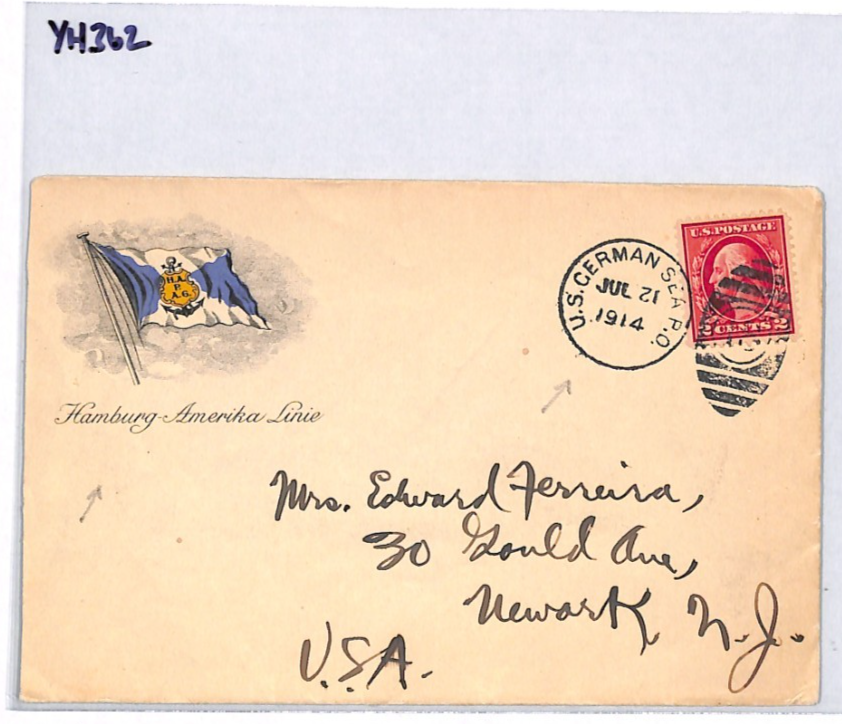 YH362
H.A.
P.
A.G.
Hamburg-Amerika Linie
U.S. GERMAN SEA P.O.
JUL 21
1914
U.S. POSTAGE
2 CENTS 2
Mrs. Edward Ferreira,
30 Gould Ave,
Newark, N.J.
U.S.A.